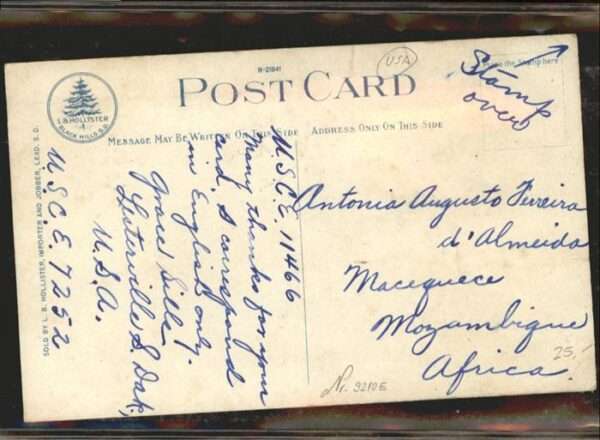 USA
R-21841
POST CARD
Stamp
over
L.B. HOLLISTER
BLACK HILLS S.D.
MESSAGE MAY BE WRITTEN ON THIS SIDE
ADDRESS ONLY ON THIS SIDE
SOLD BY L. B. HOLLISTER, IMPORTER AND JOBBER, LEAD, S. D.
U.S.C.E. 11466
Many thanks for your
card. I correspond
in English only.
Grace Sills
S. Dak,
U.S.A.
U.S.C.E. 7252
Antonia Augusto Fereira
d'Almeida
Macequece
Mozambique
Africa.
25.
Nr. 9210E